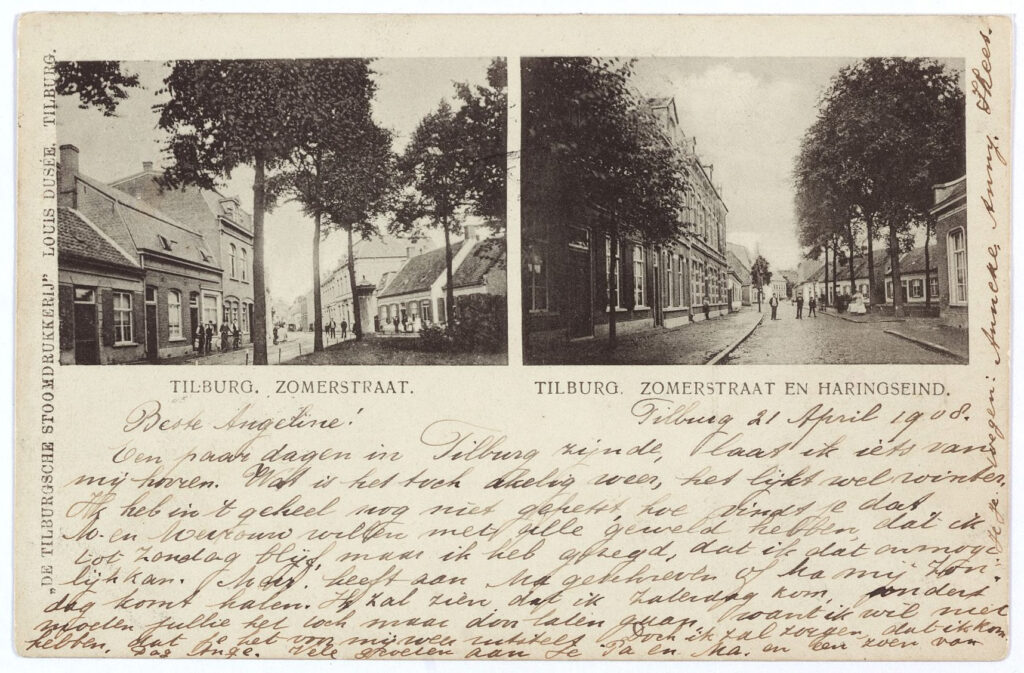 „DE TILBURGSCHE STOOMDRUKKERIJ" LOUIS DUSÉE. TILBURG.
TILBURG. ZOMERSTRAAT.
TILBURG. ZOMERSTRAAT EN HARINGSEIND.
Tilburg 21 April 1908.
Beste Angeline!
Een paar dagen in Tilburg zijnde, laat ik iets van
mij hooren. Wat is het toch akelig weer, het lijkt wel winter,
Ik heb in 't geheel nog niet gefietst, hoe vindt je dat
M. en Mevrouw willen met alle geweld hebben, dat ik
tot Zondag blijf, maar ik heb gezegd, dat ik dat onmoge
lijk kan. heeft aan Ma geschreven of Ma mij Zon-
dag komt halen. Ik zal zien, dat ik Zaterdag kom, anders
moeten jullie het toch maar door laten gaan, want ik wil niet
hebben, dat je het om mij weer uitstelt Doch ik zal zorgen, dat ik kom
Dag Ange. Vele groeten aan je Pa en Ma. en een zoen van
je je Anneke, Anny, Shees.